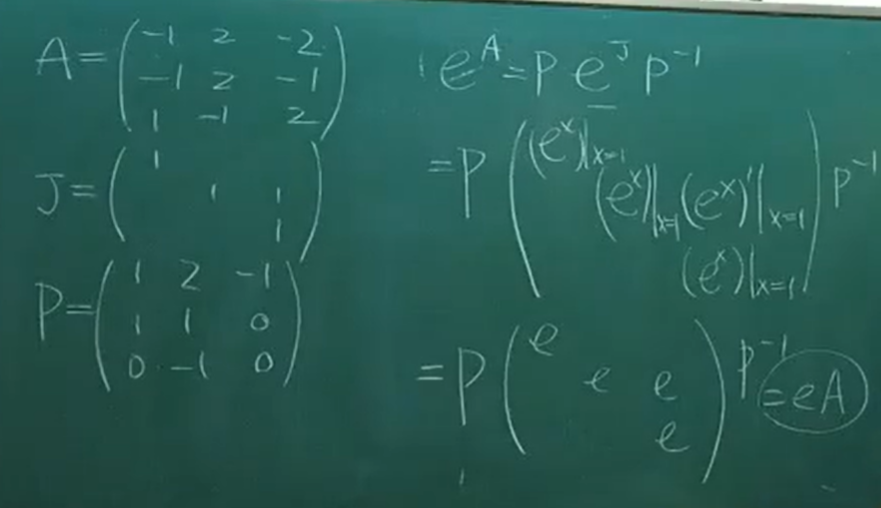 A = \begin{pmatrix} -1 & 2 & -2 \\ -1 & 2 & -1 \\ 1 & -1 & 2 \end{pmatrix}
J = \begin{pmatrix} 1 & & \\ & 1 & 1 \\ & & 1 \end{pmatrix}
P = \begin{pmatrix} 1 & 2 & -1 \\ 1 & 1 & 0 \\ 0 & -1 & 0 \end{pmatrix}
e^A = P e^J P^{-1}
= P \begin{pmatrix} (e^x)|_{x=1} & & \\ & (e^x)|_{x=1} & (e^x)'|_{x=1} \\ & & (e^x)|_{x=1} \end{pmatrix} P^{-1}
= P \begin{pmatrix} e & & \\ & e & e \\ & & e \end{pmatrix} P^{-1} = eA